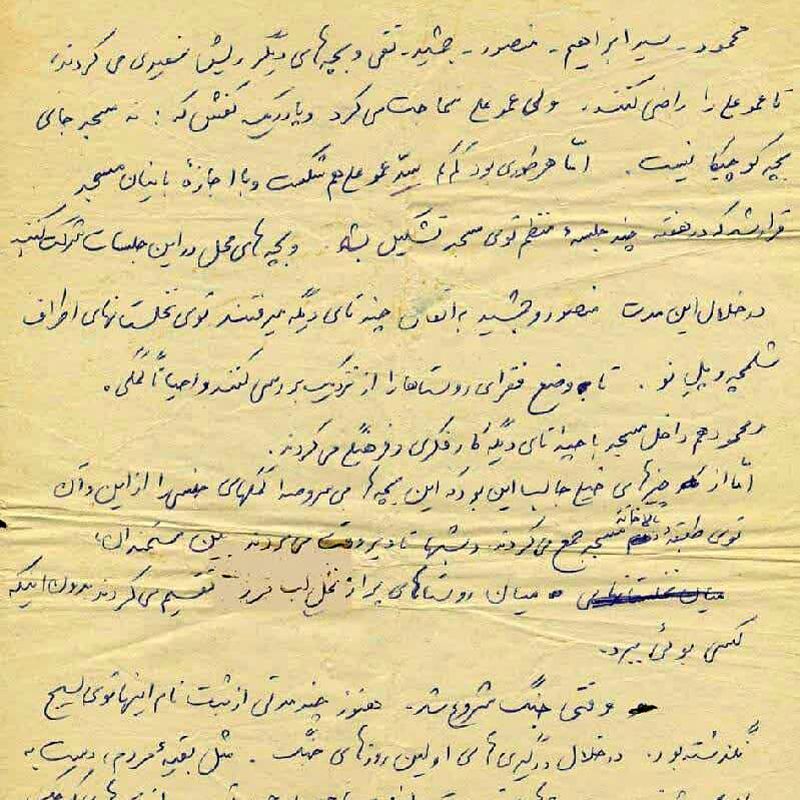 محمود - سید ابراهیم - منصور - جمشید - تقی و بچه‌های دیگر ریش سفیدی می کردند،
تا عمو علی را راضی کنند. ولی عمو علی سماجت می کرد و پا در یک کفش که : نه مسجد جای
بچه کوچیکا نیست. امّا هر طوری بود کم کم سدّ عمو علی هم شکست و با اجازهٔ بانیان مسجد
قرار شد که در هفته چند جلسهٔ منظم توی مسجد تشکیل بشه. و بچه های محل در این جلسات شرکت کنند
در خلال این مدت منصور و جمشید به اتفاق چند تای دیگه میرفتند توی نخلستانهای اطراف
شلمچه و پل نو. تا وضع فقرای روستاها را از نزدیک بررسی کنند و احیاناً کمکی.
محمود هم داخل مسجد با چند تای دیگه کار فکری و فرهنگی می کردند.
امّا از چیزهای خیلی جالب این بود که این بچه ها می کمکهای جنسی را از این و آن
توی طبقه بالاخانه مسجد جمع می کردند و شبها تا دیر وقت می بردند بین مستمندان،
میان نخلستانهای میان روستاهای پر از نخل لب مرز تقسیم می کردند بدون اینکه
کسی بوئی ببرد.
وقتی جنگ شروع شد. هنوز چند مدتی از ثبت نام اینها توی بسیج
نگذشته بود. در خلال درگیری های اولین روزهای جنگ. مثل بقیهٔ مردم، دست به